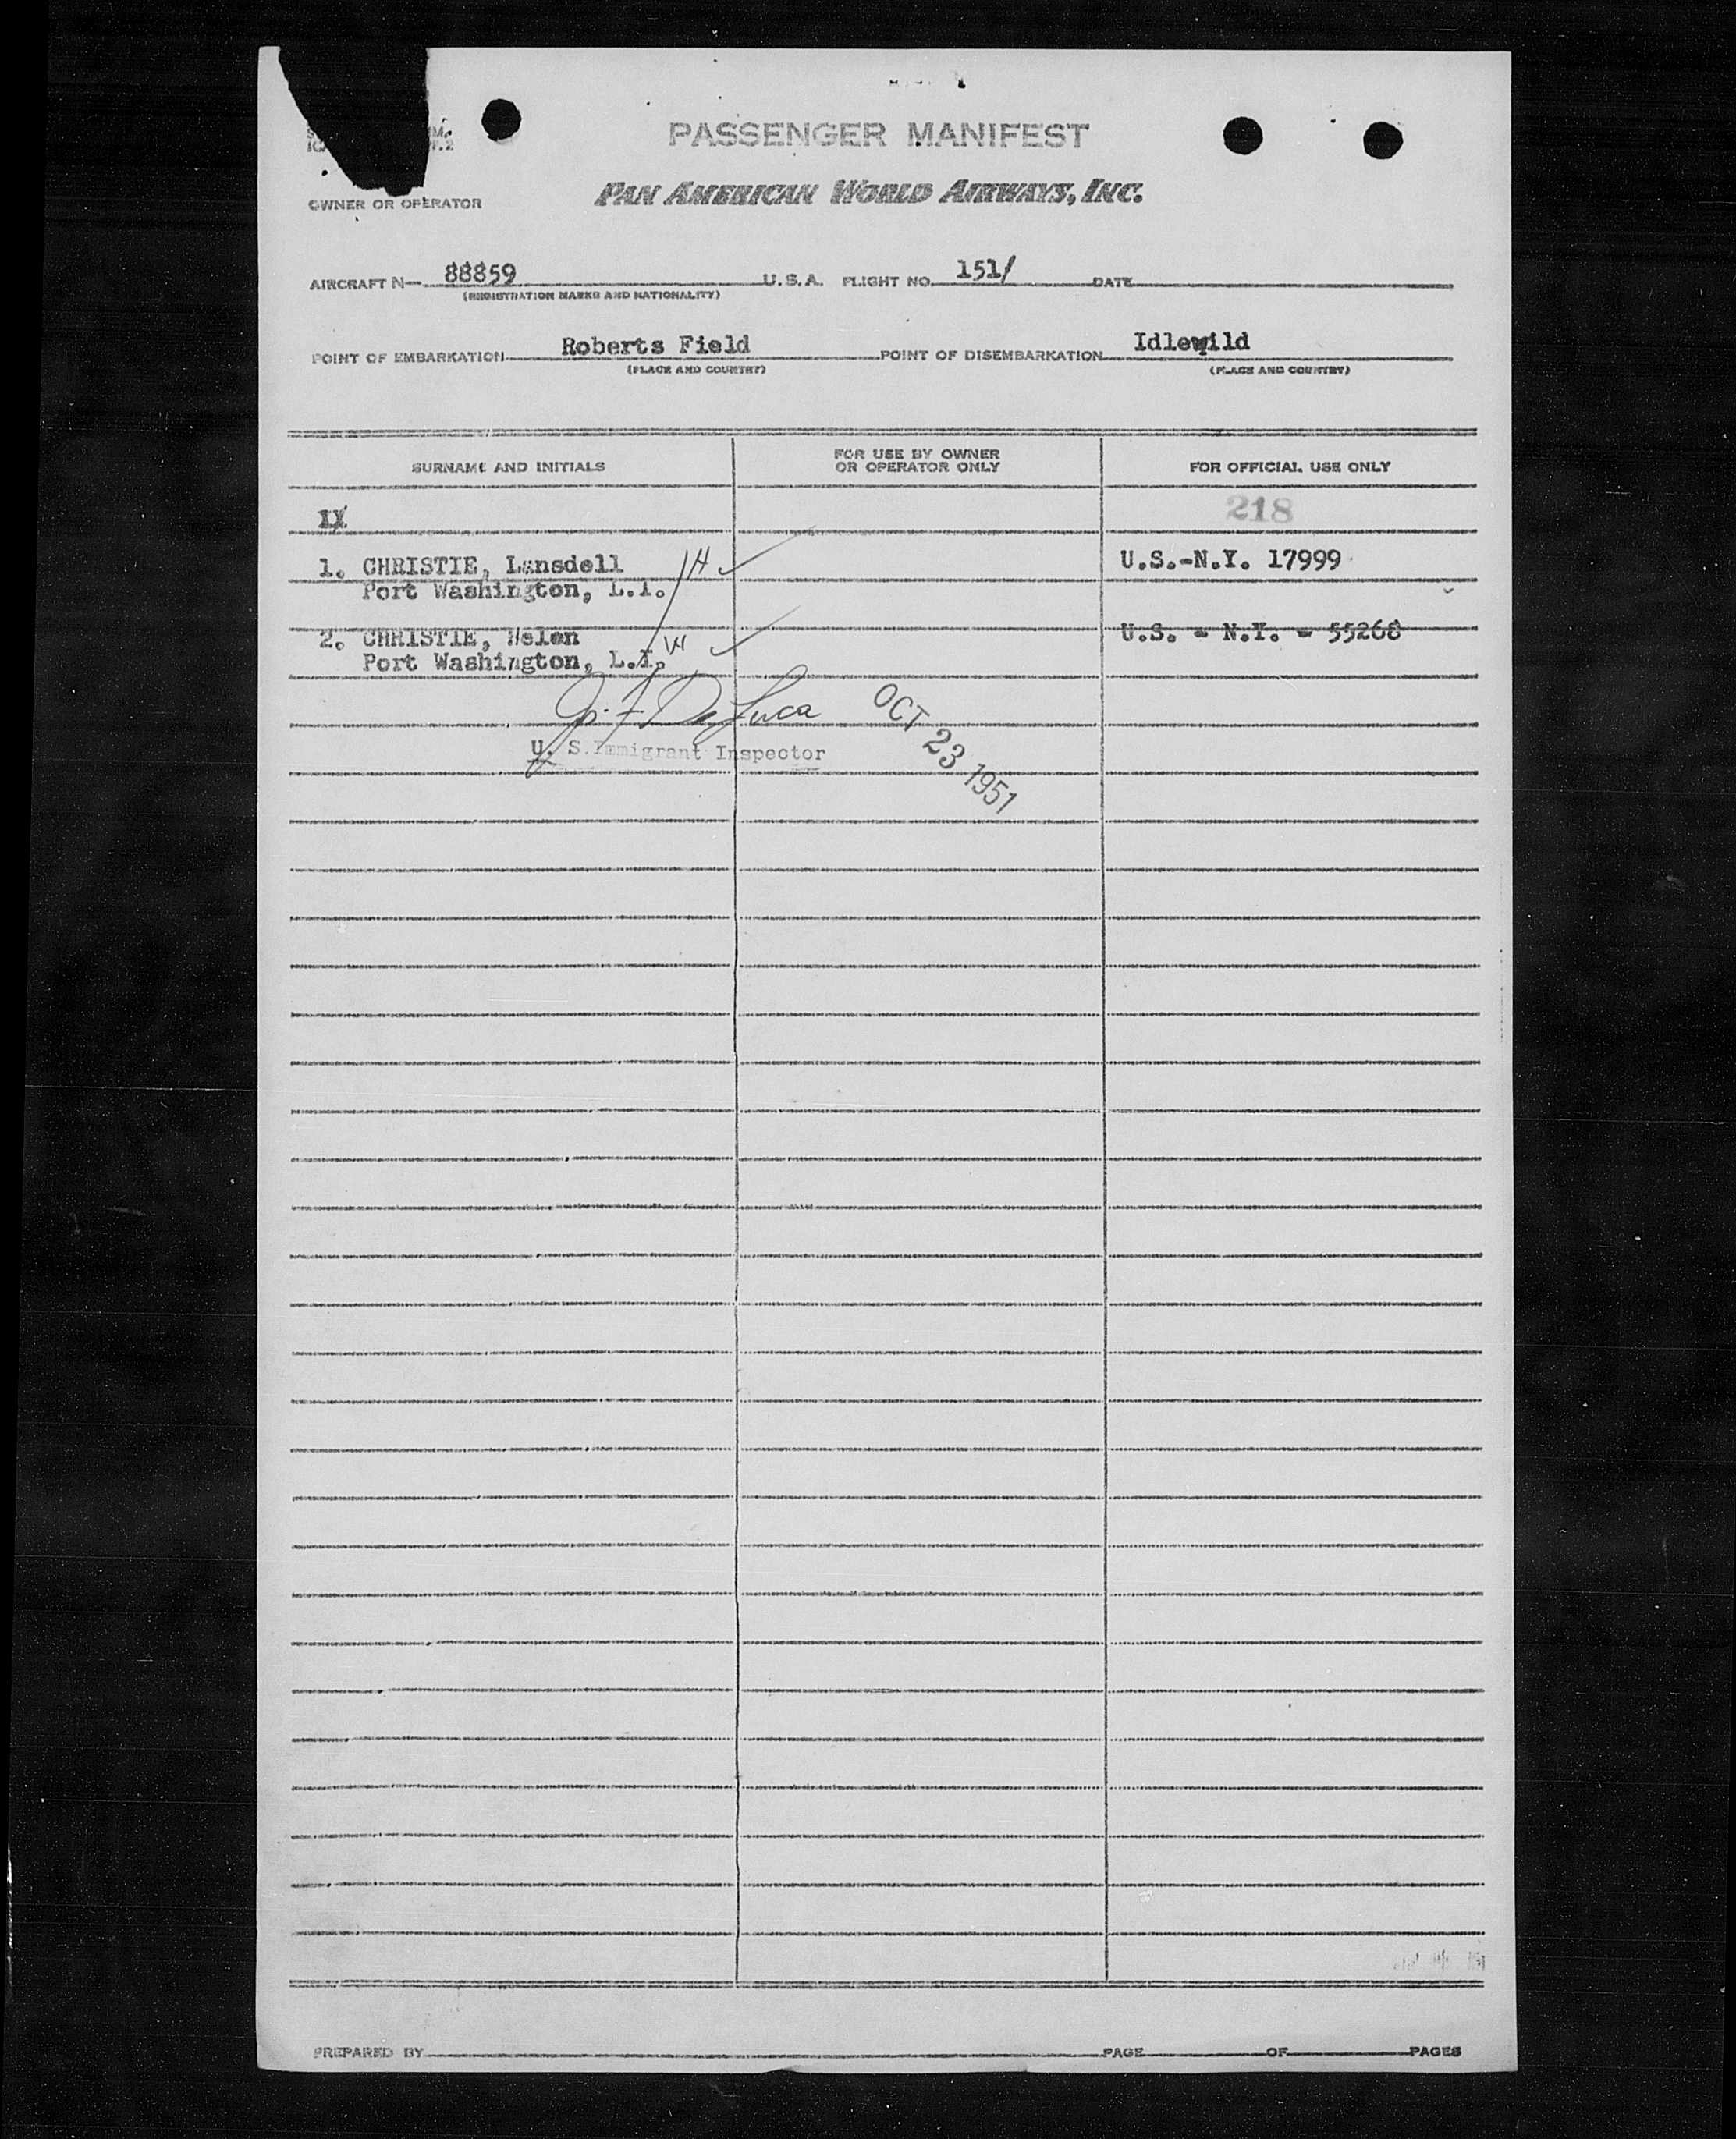 PASSENGER MANIFEST
OWNER OR OPERATOR
PAN AMERICAN WORLD AIRWAYS, INC.
AIRCRAFT N— 88859 U.S.A. FLIGHT NO. 151/ DATE
(REGISTRATION MARKS AND NATIONALITY)
POINT OF EMBARKATION Roberts Field POINT OF DISEMBARKATION Idlewild
(PLACE AND COUNTRY) (PLACE AND COUNTRY)
SURNAME AND INITIALS FOR USE BY OWNER OR OPERATOR ONLY FOR OFFICIAL USE ONLY
218
1. CHRISTIE, Lansdell U.S.-N.Y. 17999
Port Washington, L.I.
2. CHRISTIE, Helen U.S. - N.Y. - 55268
Port Washington, L.I.
DeLuca
U. S. Immigrant Inspector
OCT 23 1951
PREPARED BY PAGE OF PAGES